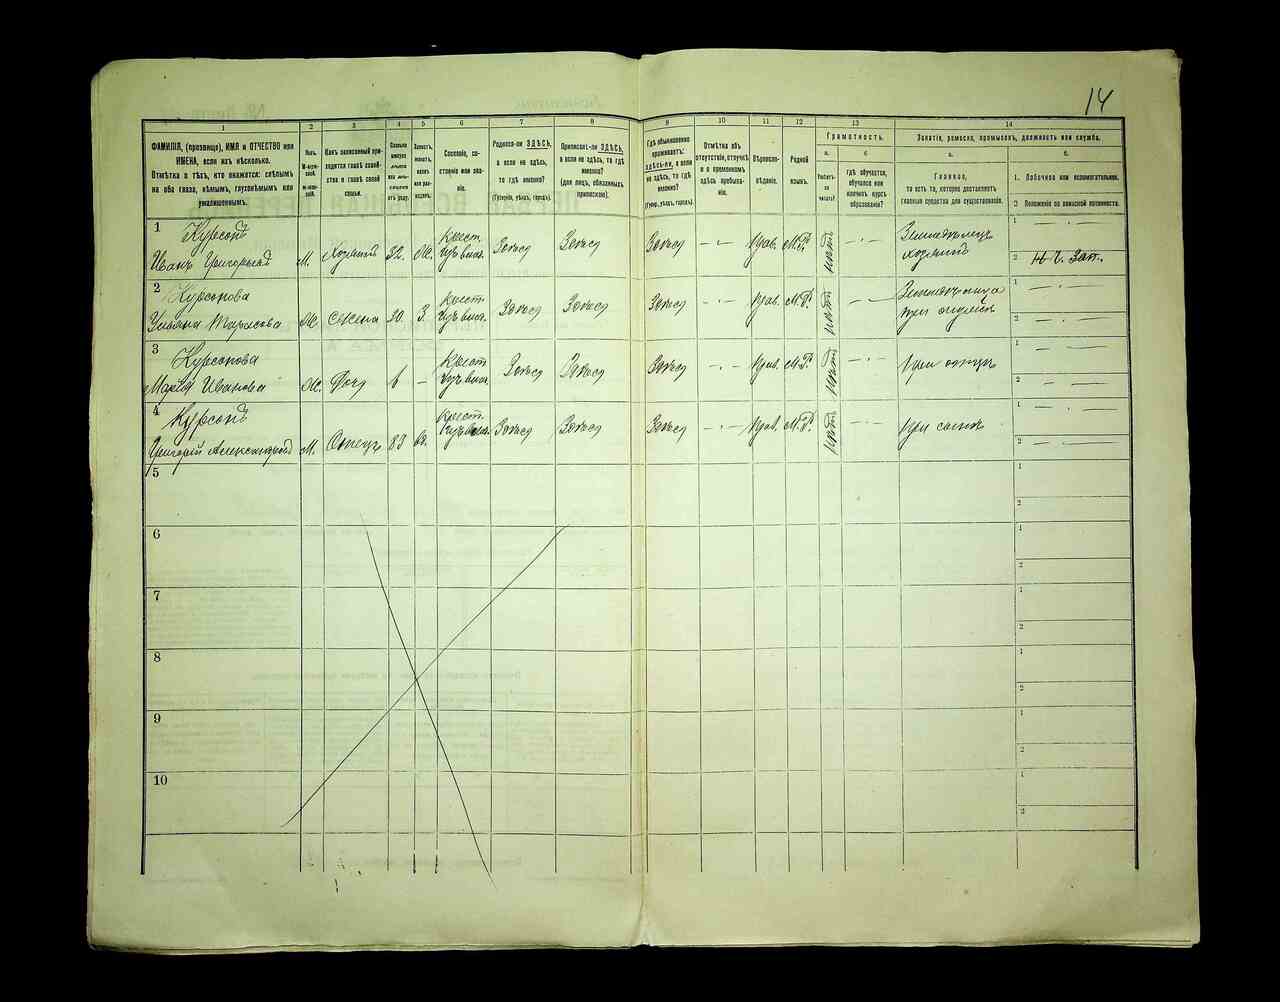 14
1
2
3
4
5
6
7
8
9
10
11
12
13
14
ФАМИЛІЯ, (прозвище), ИМЯ и ОТЧЕСТВО или
ИМЕНА, если ихъ нѣсколько.
Отмѣтка о тѣхъ, кто окажется: слѣпымъ
на оба глаза, нѣмымъ, глухонѣмымъ или
умалишеннымъ.
Полъ.
М-мужской.
Ж-женскій.
Какъ записанный приходится
главѣ хозяйства
и главѣ своей
семьи.
Сословіе, состояніе
или званіе.
Родился-ли ЗДѢСЬ,
а если не здѣсь,
то гдѣ именно?
(Губернія, уѣздъ, городъ).
Приписанъ-ли ЗДѢСЬ,
а если не здѣсь, то гдѣ
именно?
(для лицъ, обязанныхъ
припискою).
Гдѣ обыкновенно
проживаетъ:
здѣсь-ли, а если
не здѣсь, то гдѣ
именно?
(Губер., уѣздъ, городъ).
Отмѣтка объ
отсутствіи, отлучкѣ
и о временномъ
здѣсь пребываніи.
Вѣроисповѣданіе.
Родной
языкъ.
Грамотность.
а.
Умѣетъ ли
читать?
б.
Гдѣ обучается,
обучался или
кончилъ курсъ
образованія?
Занятіе, ремесло, промыселъ, должность или служба.
а.
Главное,
то есть то, которое доставляетъ
главныя средства для существованія.
б.
1. Побочное или вспомогательное.
2 Положеніе по воинской повинности.
1
Курсонъ
Иванъ Григорьевъ
М.
Хозяинъ
32.
Ж.
Крест.
Здѣсь
Здѣсь
Здѣсь
Прав.
М.Р.
нѣтъ
Земледѣлецъ
хозяинъ
1
2
2
Курсонова
Ульяна Тарасова
Ж.
Жена
30
З.
Крест.
Здѣсь
Здѣсь
Здѣсь
Прав.
М.Р.
нѣтъ
1
2
3
Курсонова
Марія Иванова
Ж.
Дочь
6
Крест.
Здѣсь
Здѣсь
Здѣсь
Прав.
М.Р.
нѣтъ
при отцѣ
1
2
4
Курсонъ
Григорій Александровъ
М.
Отецъ
83
Вд.
Крест.
Здѣсь
Здѣсь
Здѣсь
Прав.
М.Р.
нѣтъ
при сынѣ
1
2
5
1
2
6
1
2
7
1
2
8
1
2
9
1
2
10
1
2